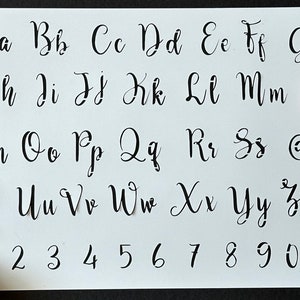 a Bb Cc Dd Ee Ff G
h Ii Jj Kk Ll Mm
n Oo Pp Qq Rr Ss
Uu Vv Ww Xx Yy Z
2 3 4 5 6 7 8 9 0